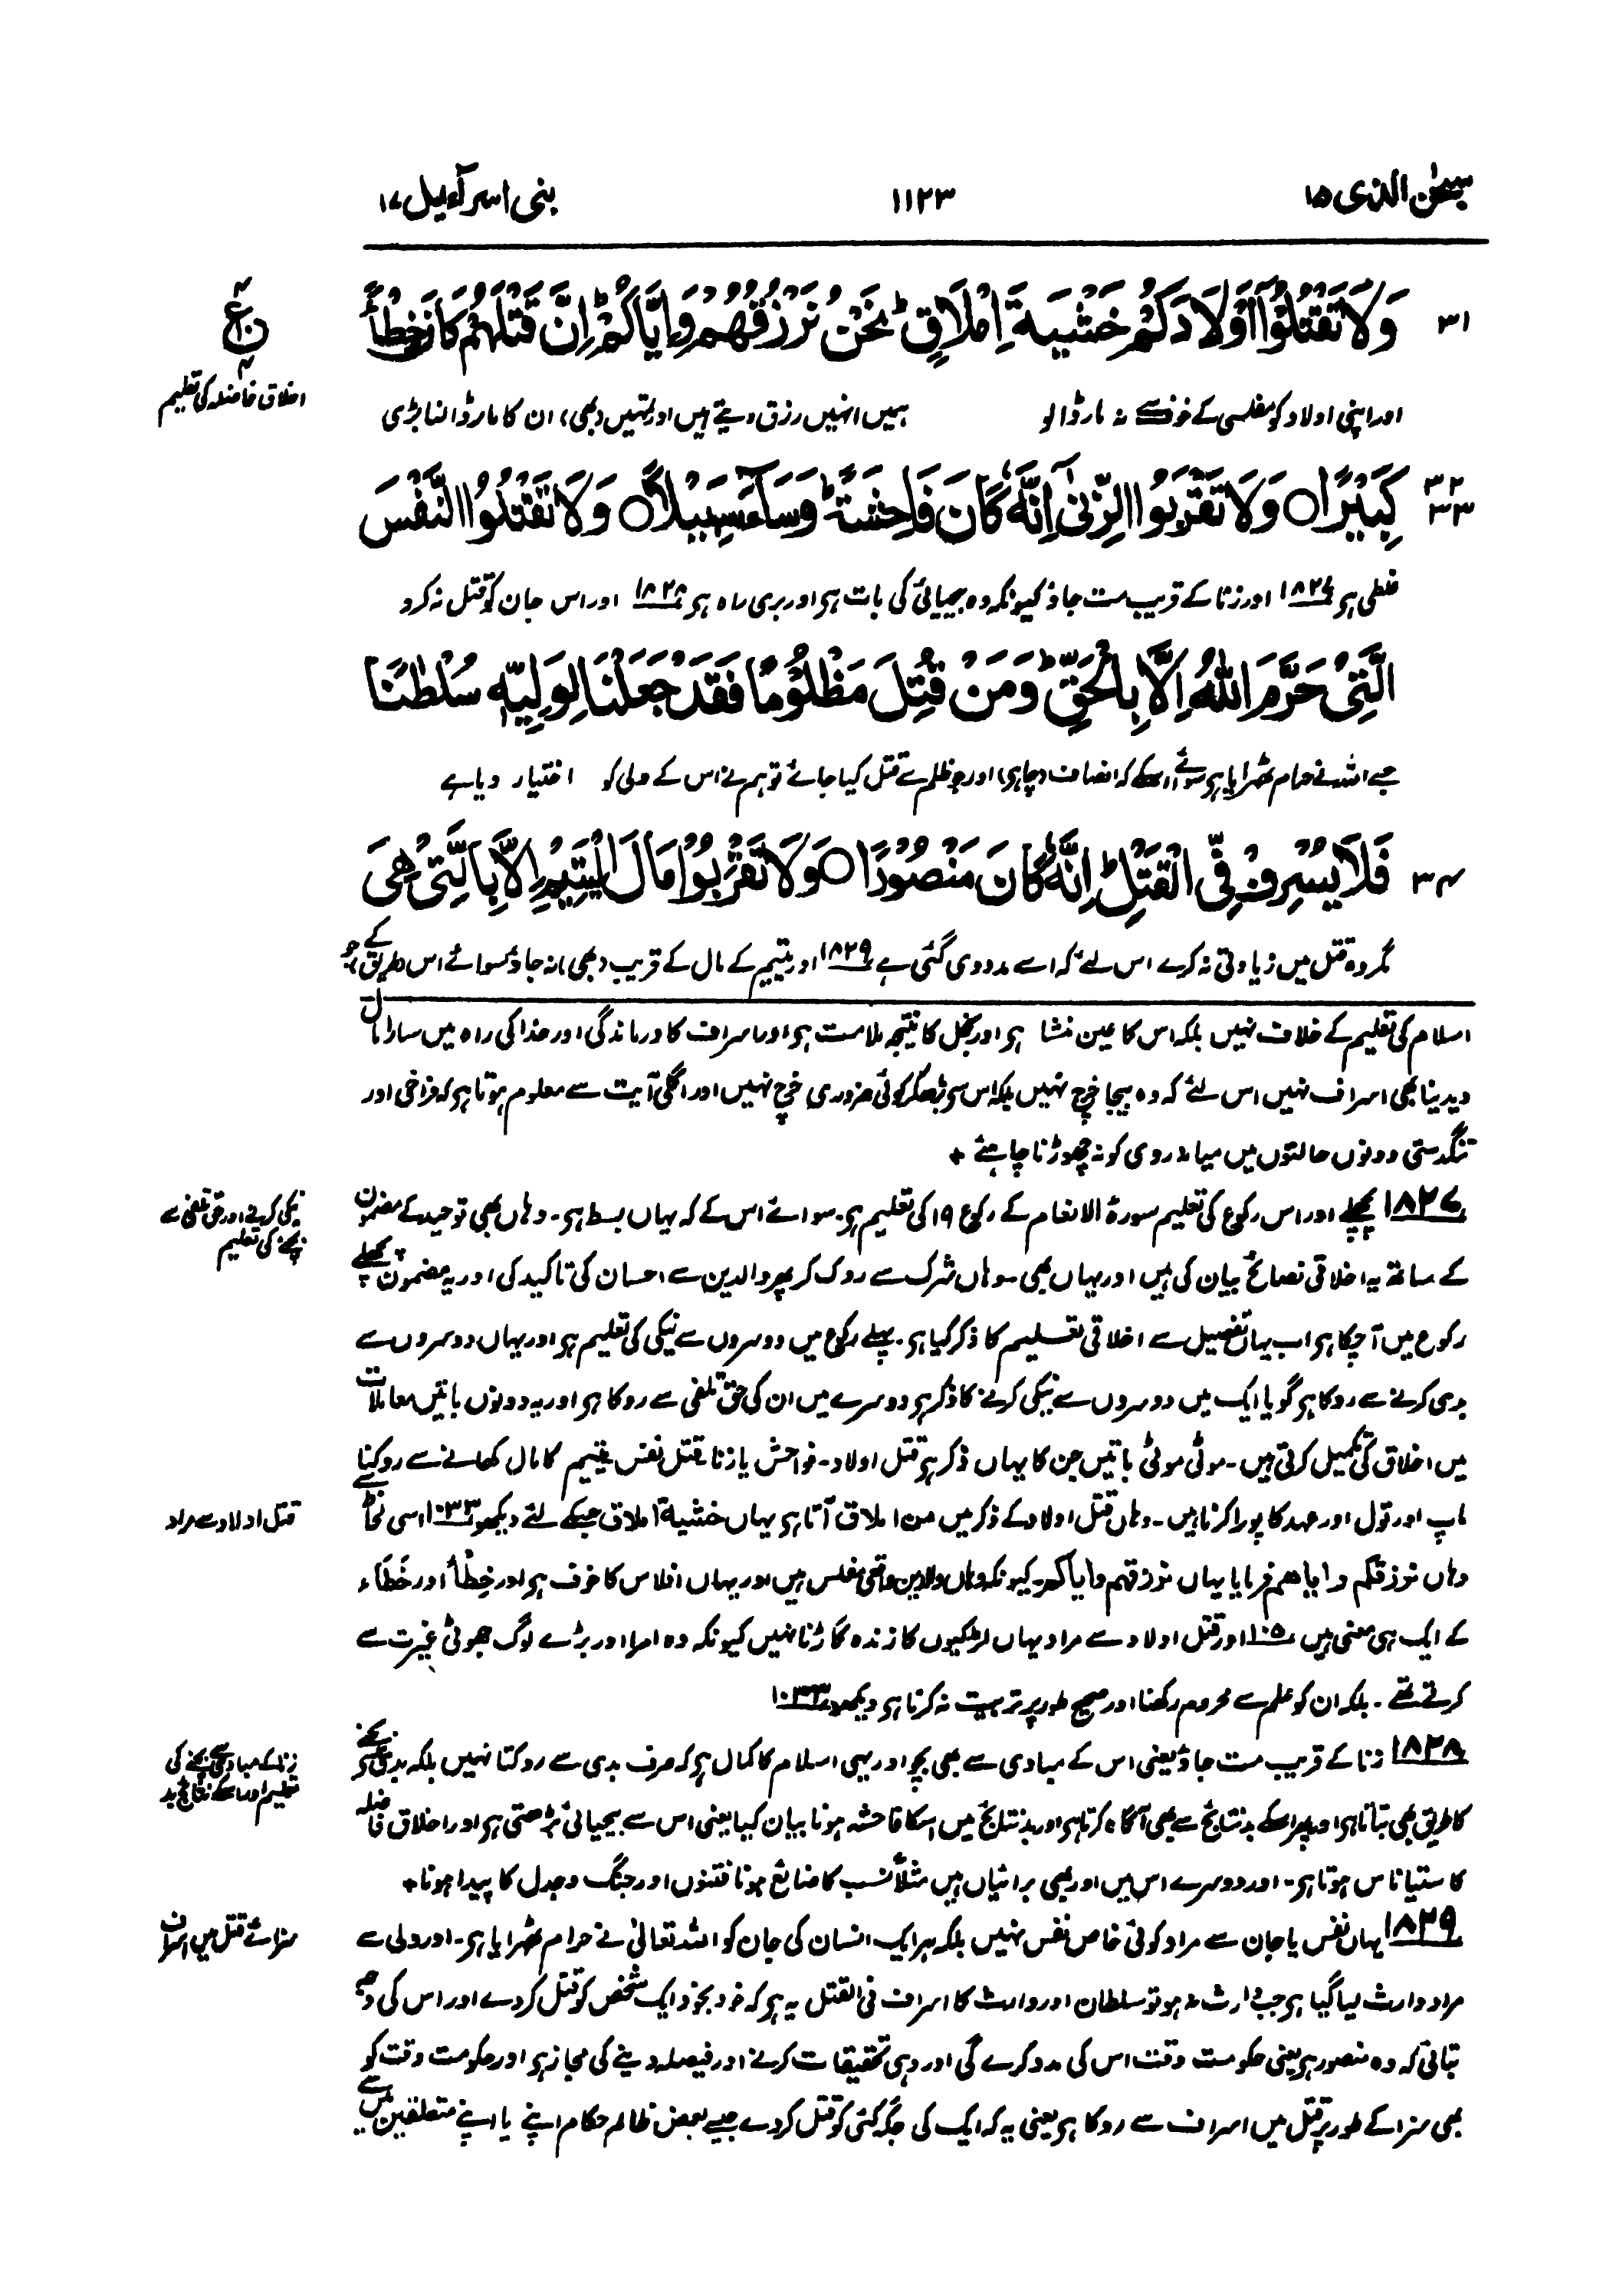 سبحٰن الذی ۱۵
۱۱۲۳
بنی اسرآءیل ۱۷
۳۱
وَلَا تَقْتُلُوْٓا اَوْلَادَكُمْ خَشْيَةَ اِمْلَاقٍ ؕ نَحْنُ نَرْزُقُهُمْ وَاِيَّاكُمْ ؕ اِنَّ قَتْلَهُمْ كَانَ خِطْاً
ع
اخلاق فاضلہ کی تعلیم
اور اپنی اولاد کو مفلسی کے خوف سے نہ مار ڈالو ہمیں انہیں رزق دیتے ہیں اور تمہیں (بھی) ان کا مار ڈالنا بڑی
۳۲
۳۳
كَبِيْرًا ○ وَلَا تَقْرَبُوا الزِّنٰٓى اِنَّهٗ كَانَ فَاحِشَةً ؕ وَسَآءَ سَبِيْلًا ○ وَلَا تَقْتُلُوا النَّفْسَ
غلطی ہو ۱۸۲۷ اور زنا کے قریب مت جاؤ کیونکہ وہ بیحیائی کی بات ہو اور بری راہ ہو ۱۸۲۸ اور اس جان کو قتل نہ کرو
الَّتِيْ حَرَّمَ اللّٰهُ اِلَّا بِالْحَقِّ ؕ وَمَنْ قُتِلَ مَظْلُوْمًا فَقَدْ جَعَلْنَا لِوَلِيِّهٖ سُلْطٰنًا
جسے اللہ نے حرام ٹھرایا ہو سوائے اسکے کہ انصاف (چاہو) اور جو ظلم سے قتل کیا جائے تو ہم نے اس کے ولی کو اختیار دیا ہے
۳۴
فَلَا يُسْرِفْ فِّى الْقَتْلِ ؕ اِنَّهٗ كَانَ مَنْصُوْرًا ○ وَلَا تَقْرَبُوْا مَالَ الْيَتِيْمِ اِلَّا بِالَّتِيْ هِيَ
مگر وہ قتل میں زیادتی نہ کرے اس لئے کہ اسے مدد دی گئی ہے ۱۸۲۹ اور یتیم کے مال کے قریب (بھی) نہ جاؤ سوائے اس (طریق) کے جو
اسلام کی تعلیم کے خلاف نہیں بلکہ اس کا عین منشا ہو اور بخل کا نتیجہ ملامت ہو اور اسراف کا درماندگی اور خدا کی راہ میں سارا مال
دیدینا بھی اسراف نہیں اس لئے کہ وہ بیجا خرچ نہیں بلکہ اس سو بڑھکر کوئی ضروری خرچ نہیں اور اگلی آیت سے معلوم ہوتا ہو کہ فراخی اور
تنگدستی دونوں حالتوں میں میانہ روی کو نہ چھوڑنا چاہئے ٭
۱۸۲۷ پچھلے اور اس رکوع کی تعلیم سورۃ الانعام کے رکوع ۱۹ کی تعلیم ہو۔ سوائے اس کے کہ یہاں بسط ہو۔ وہاں بھی توحید کے مضمون
نیکی کرنے اور حق تلفی سے
بچنے کی تعلیم
کے ساتھ یہ اخلاقی نصائح بیان کی ہیں اور یہاں بھی۔ وہاں شرک سے روک کر پھر والدین سے احسان کی تاکید کی اور یہ مضمون پچھلے
رکوع میں آچکا ہو اب یہاں تفصیل سے اخلاقی تعلیم کا ذکر کیا ہو۔ پہلے رکوع میں دوسروں سے نیکی کی تعلیم ہو اور یہاں دوسروں سے
بدی کرنے سے روکا ہو گویا ایک میں دوسروں سے نیکی کرنے کا ذکر ہو دوسرے میں ان کی حق تلفی سے روکا ہو اور یہ دونوں باتیں معاملات
میں اخلاق کی تکمیل کرتی ہیں۔ موٹی موٹی باتیں جن کا یہاں ذکر ہو قتل اولاد۔ فواحش یا زنا قتل نفس یتیم کا مال کھانے سے روکنا
ماپ اور تول اور عہد کا پورا کرنا ہیں۔ وہاں قتل اولاد کے ذکر میں من املاق آتا ہو یہاں خشیۃ املاق جسکے لئے دیکھو ۱۰۳۳ اسی لحاظ سے
قتل اولاد سے مراد
وہاں نرزقکم وایاھم فرمایا یہاں نرزقھم وایاکم۔ کیونکہ وہاں والدین واقعی مفلس ہیں اور یہاں افلاس کا خوف ہو اور خِطْأ اور خَطَاء
کے ایک ہی معنی ہیں ۱۰۵ اور قتل اولاد سے مراد یہاں لڑکیوں کا زندہ گاڑنا نہیں کیونکہ وہ امرا اور بڑے لوگ جھوٹی غیرت سے
کرتے تھے۔ بلکہ ان کو علم سے محروم رکھنا اور صحیح طور پر تربیت نہ کرنا ہو دیکھو ۱۰۳۳
۱۸۲۸ زنا کے قریب مت جاؤ یعنی اس کے مبادی سے بھی بچو اور یہی اسلام کا کمال ہو کہ صرف بدی سے روکتا نہیں بلکہ بدی سے بچنے
زنا کے مبادی سے بچنے کی
تعلیم اور اسکے نتائج بد
کا طریق بھی بتاتا ہو اور پھر اسکے بد نتائج سے بھی آگاہ کرتا ہو اور بد نتائج میں اسکا فاحشہ ہونا بیان کیا یعنی اس سے بیحیائی بڑھتی ہو اور اخلاق فاضلہ
کا ستیاناس ہوتا ہو۔ اور دوسرے اس میں اور بھی برائیاں ہیں مثلاً نسب کا ضائع ہونا فتنوں اور جنگ وجدل کا پیدا ہونا ٭
۱۸۲۹ یہاں نفس یا جان سے مراد کوئی خاص نفس نہیں بلکہ ہر ایک انسان کی جان کو اللہ تعالیٰ نے حرام ٹھرایا ہو۔ اور ولی سے
سزائے قتل میں اسراف
مراد وارث لیا گیا ہو جب وارث نہ ہو تو سلطان اور وارث کا اسراف فی القتل یہ ہو کہ خود بخود ایک شخص کو قتل کر دے اور اس کی وجہ
بتائی کہ وہ منصور ہو یعنی حکومت وقت اس کی مدد کرے گی اور وہی تحقیقات کرنے اور فیصلہ دینے کی مجاز ہو اور حکومت وقت کو
بھی سزا کے طور پر قتل میں اسراف سے روکا ہو یعنی یہ کہ ایک کی جگہ کئی کو قتل کر دے جیسے بعض ظالم حکام اپنے یا اپنے متعلقین میں سے